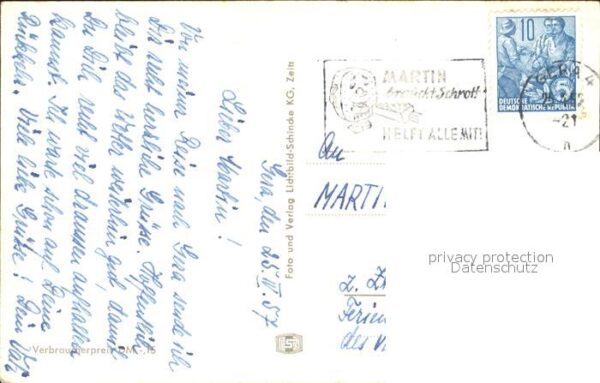 Gera, den 25. VI. 57
Lieber Martin!
Von meiner Reise nach Gera sende ich
Dir recht herzliche Grüße. Hoffentlich
bleibt das Wetter weiterhin gut, damit
Du Dich recht viel draussen aufhalten
kannst. Ich warte schon auf Deine
Rückkehr. Viele liebe Grüße! Dein
Verbraucherpreis DM -,15
Foto und Verlag Lichtbild-Schincke KG, Zeitz
MARTIN
braucht Schrott!
HELFT ALLE MIT!
10
DEUTSCHE
DEMOKRATISCHE REPUBLIK
5
GERA 4
-21
An
MARTI
z. Z.
Ferien
des
privacy protection
Datenschutz